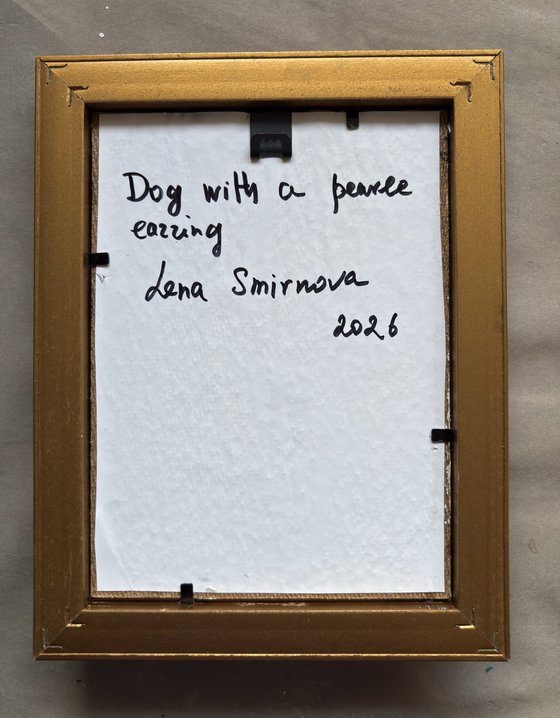 Dog with a pearle
earring
Lena Smirnova
2026